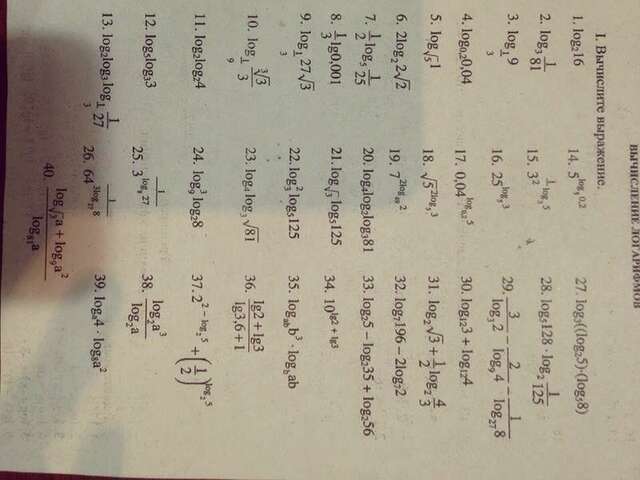 ВЫЧИСЛЕНИЕ ЛОГАРИФМОВ
I. Вычислите выражение.
1. log₂16
2. log₃ 1/81
3. log_(1/3) 9
4. log₀,₂0,04
5. log_√5 1
6. 2log₂2√2
7. 1/2 log₅ 1/25
8. 1/3 lg0,001
9. log_(1/3) 27√3
10. log_(1/9) ∛3/3
11. log₂log₂4
12. log₅log₃3
13. log₂log₃ log_(1/3) 1/27
14. 5^(log₅0,2)
16. 25^(log₅3)
17. 0,04^(log₀,₂5)
18. √5^(2log₅3)
19. 7^(2log₄₉2)
20. log₄log₂log₃81
21. log_√3 log₅125
22. log₃² log₅125
23. log₄ log₃ √81
24. log₉³ log₂8
25. 3^(1/log₉27)
26. 64^(1/(3log₂₇8))
27. log₃((log₂5)·(log₅8)
28. log₅128 · log₂ 1/125
29. 3/log₃2 − 2/log₉4 − 1/log₂₇8
30. log₁₂3 + log₁₂4
31. log₂√3 + 1/2 log₂ 4/3
32. log₇196 − 2log₇2
33. log₂5 − log₂35 + log₂56
34. 10^(lg2 + lg3)
35. log_ab b³ · log_b ab
36. (lg2 + lg3)/(lg3,6 + 1)
37. 2^(2 − log₂5) + (1/2)^(log₂5)
38. log₂a³/log₂a
39. logₐ4 · log₈a²
40. (log_√3 a + log₉a²)/log₈₁a